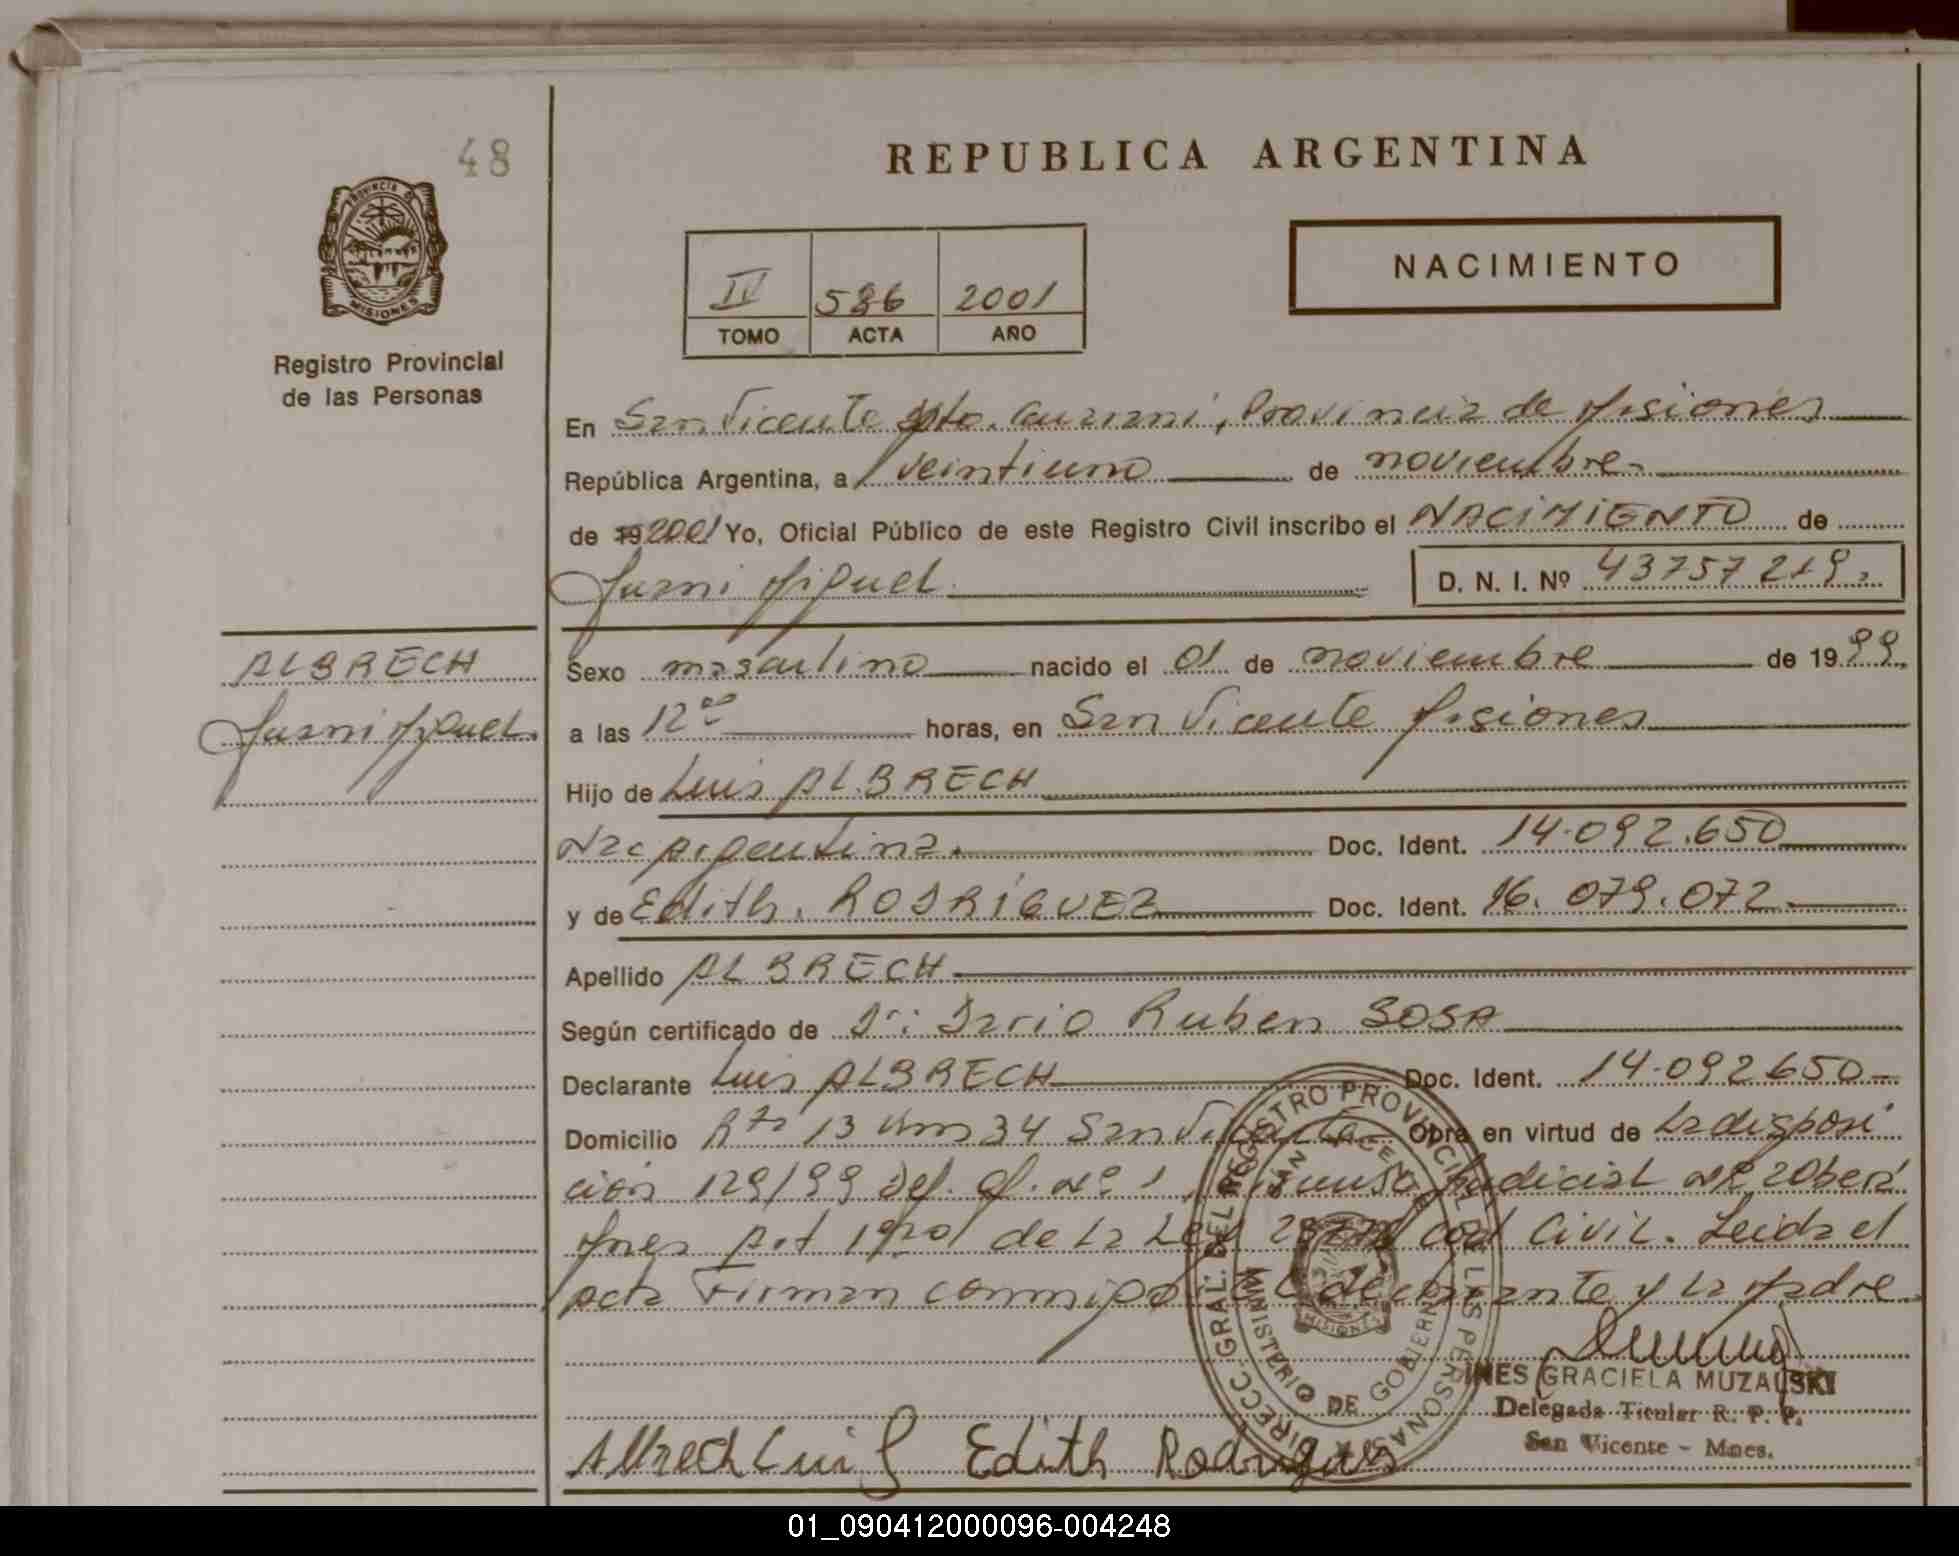 48
REPUBLICA ARGENTINA
PROVINCIA DE
MISIONES
Registro Provincial
de las Personas
NACIMIENTO
IV 586 2001
TOMO ACTA AÑO
En San Vicente Dpto. Guarani, Provincia de Misiones
República Argentina, a veintiuno de noviembre
de 19 2001 Yo, Oficial Público de este Registro Civil inscribo el NACIMIENTO de
Juani Miguel D. N. I. Nº 43757219
ALBRECH
Juani Miguel
Sexo masculino nacido el 01 de noviembre de 1999
a las 12 horas, en San Vicente Misiones
Hijo de Luis ALBRECH
Nac Argentina. Doc. Ident. 14.092.650
y de Edith. RODRÍGUEZ Doc. Ident. 16.079.072
Apellido ALBRECH
Según certificado de Dr: Dario Ruben SOSA
Declarante Luis ALBRECH Doc. Ident. 14.092650
Domicilio Rta 13 Km 34 San Vicente Obra en virtud de la disposi
ción 129/99 Def. Of. Nº 1, Judicial Oberá
Mnes Art 1º de la Ley Cod Civil. Leida el
acta Firman conmigo el declarante y la Madre
DIRECC. GRAL. DEL REGISTRO PROVINCIAL DE LAS PERSONAS
SAN VICENTE
MINISTERIO DE GOBIERNO
MISIONES
INES GRACIELA MUZALSKI
Delegada Titular R. P. P.
San Vicente - Mnes.
Albrech Luis Edith Rodrigues
01_090412000096-004248